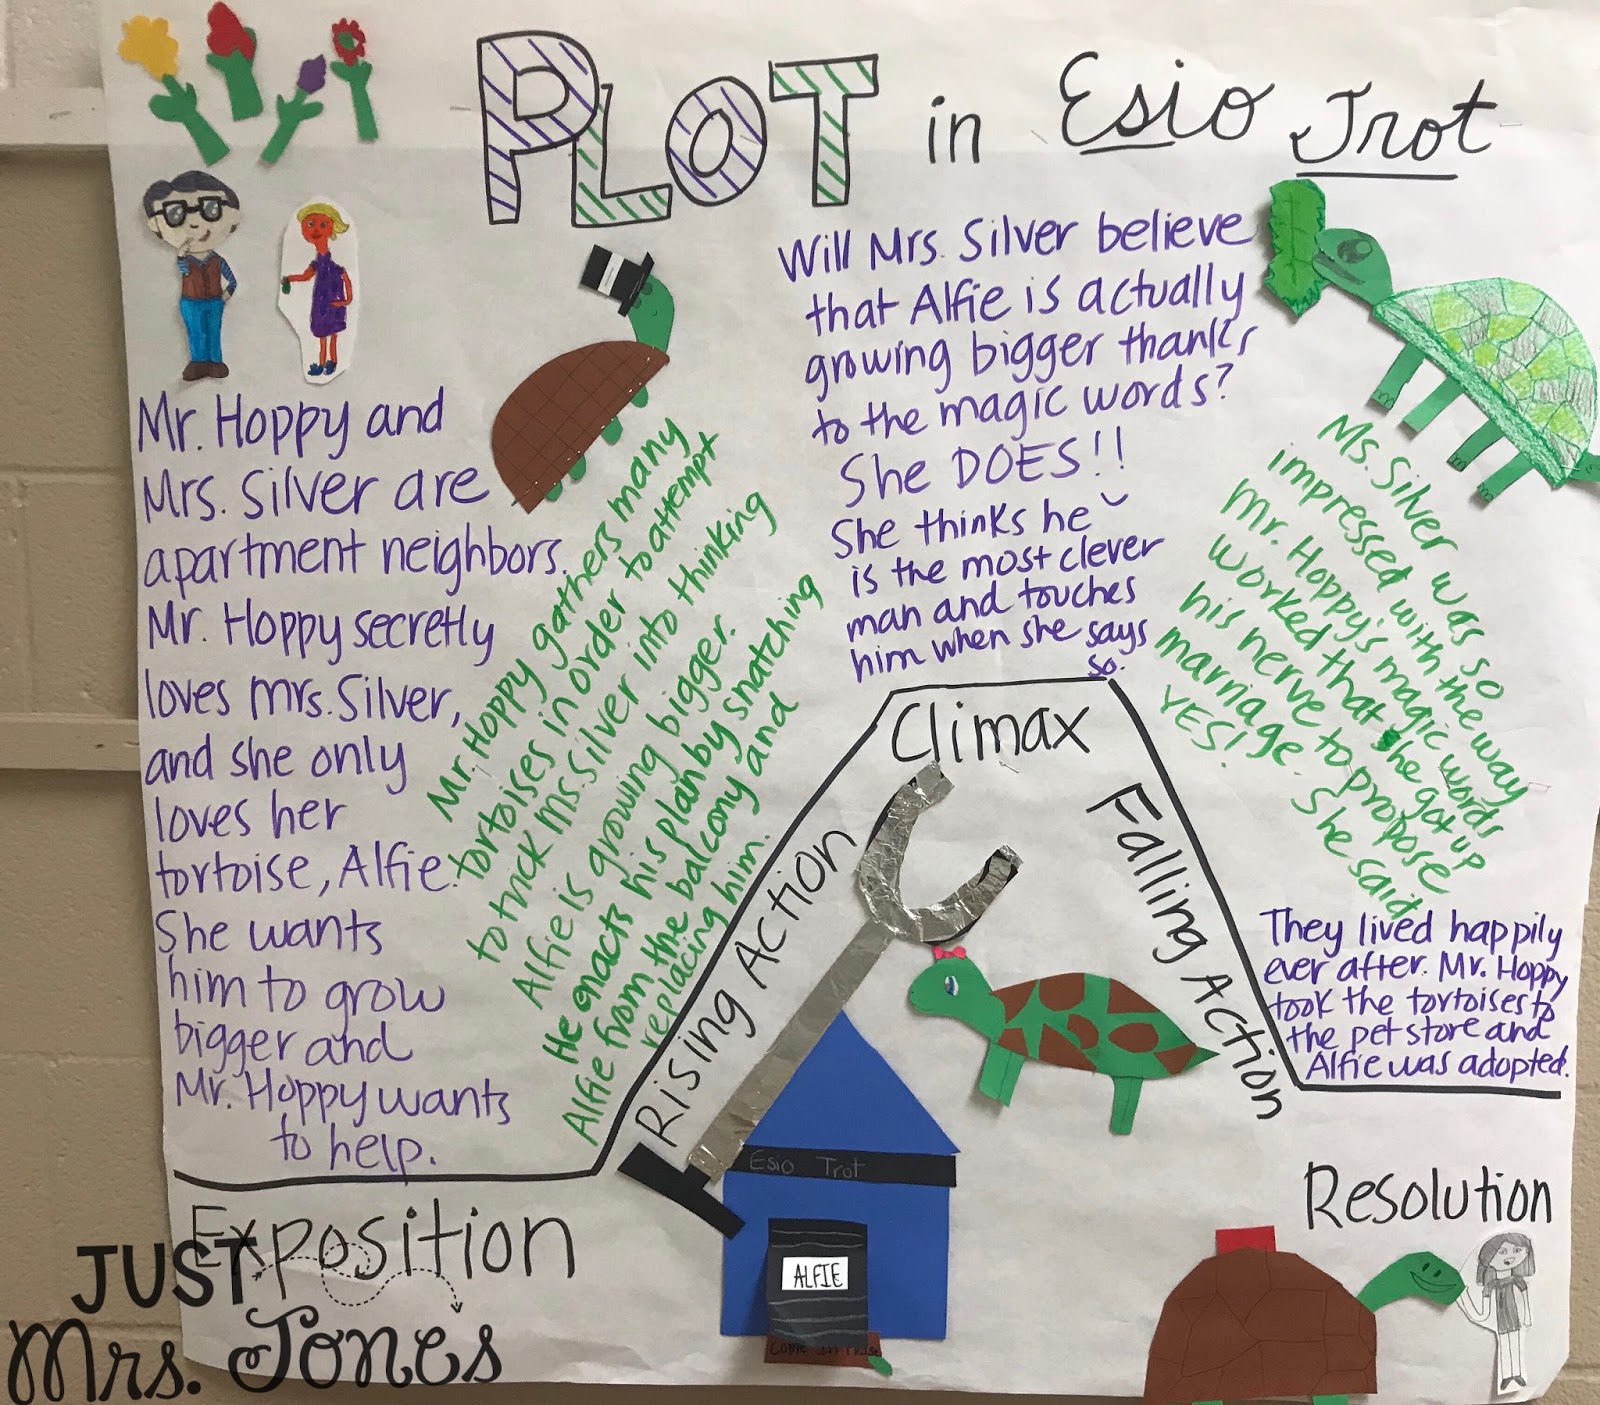 PLOT in Esio Trot
Mr. Hoppy and
Mrs. Silver are
apartment neighbors.
Mr. Hoppy secretly
loves Mrs. Silver,
and she only
loves her
tortoise, Alfie.
She wants
him to grow
bigger and
Mr. Hoppy wants
to help.
Exposition
Mr. Hoppy gathers many
tortoises in order to attempt
to trick Ms. Silver into thinking
Alfie is growing bigger.
He enacts his plan by snatching
Alfie from the balcony and
replacing him.
Rising Action
Will Mrs. Silver believe
that Alfie is actually
growing bigger thanks
to the magic words?
She DOES!!
She thinks he
is the most clever
man and touches
him when she says
so.
Climax
Ms. Silver was so
impressed with the way
Mr. Hoppy's magic words
worked that she got up
his nerve to propose
marriage. She said
YES!
Falling Action
They lived happily
ever after. Mr. Hoppy
took the tortoises to
the pet store and
Alfie was adopted.
Resolution
Esio Trot
ALFIE
JUST
Mrs. Jones